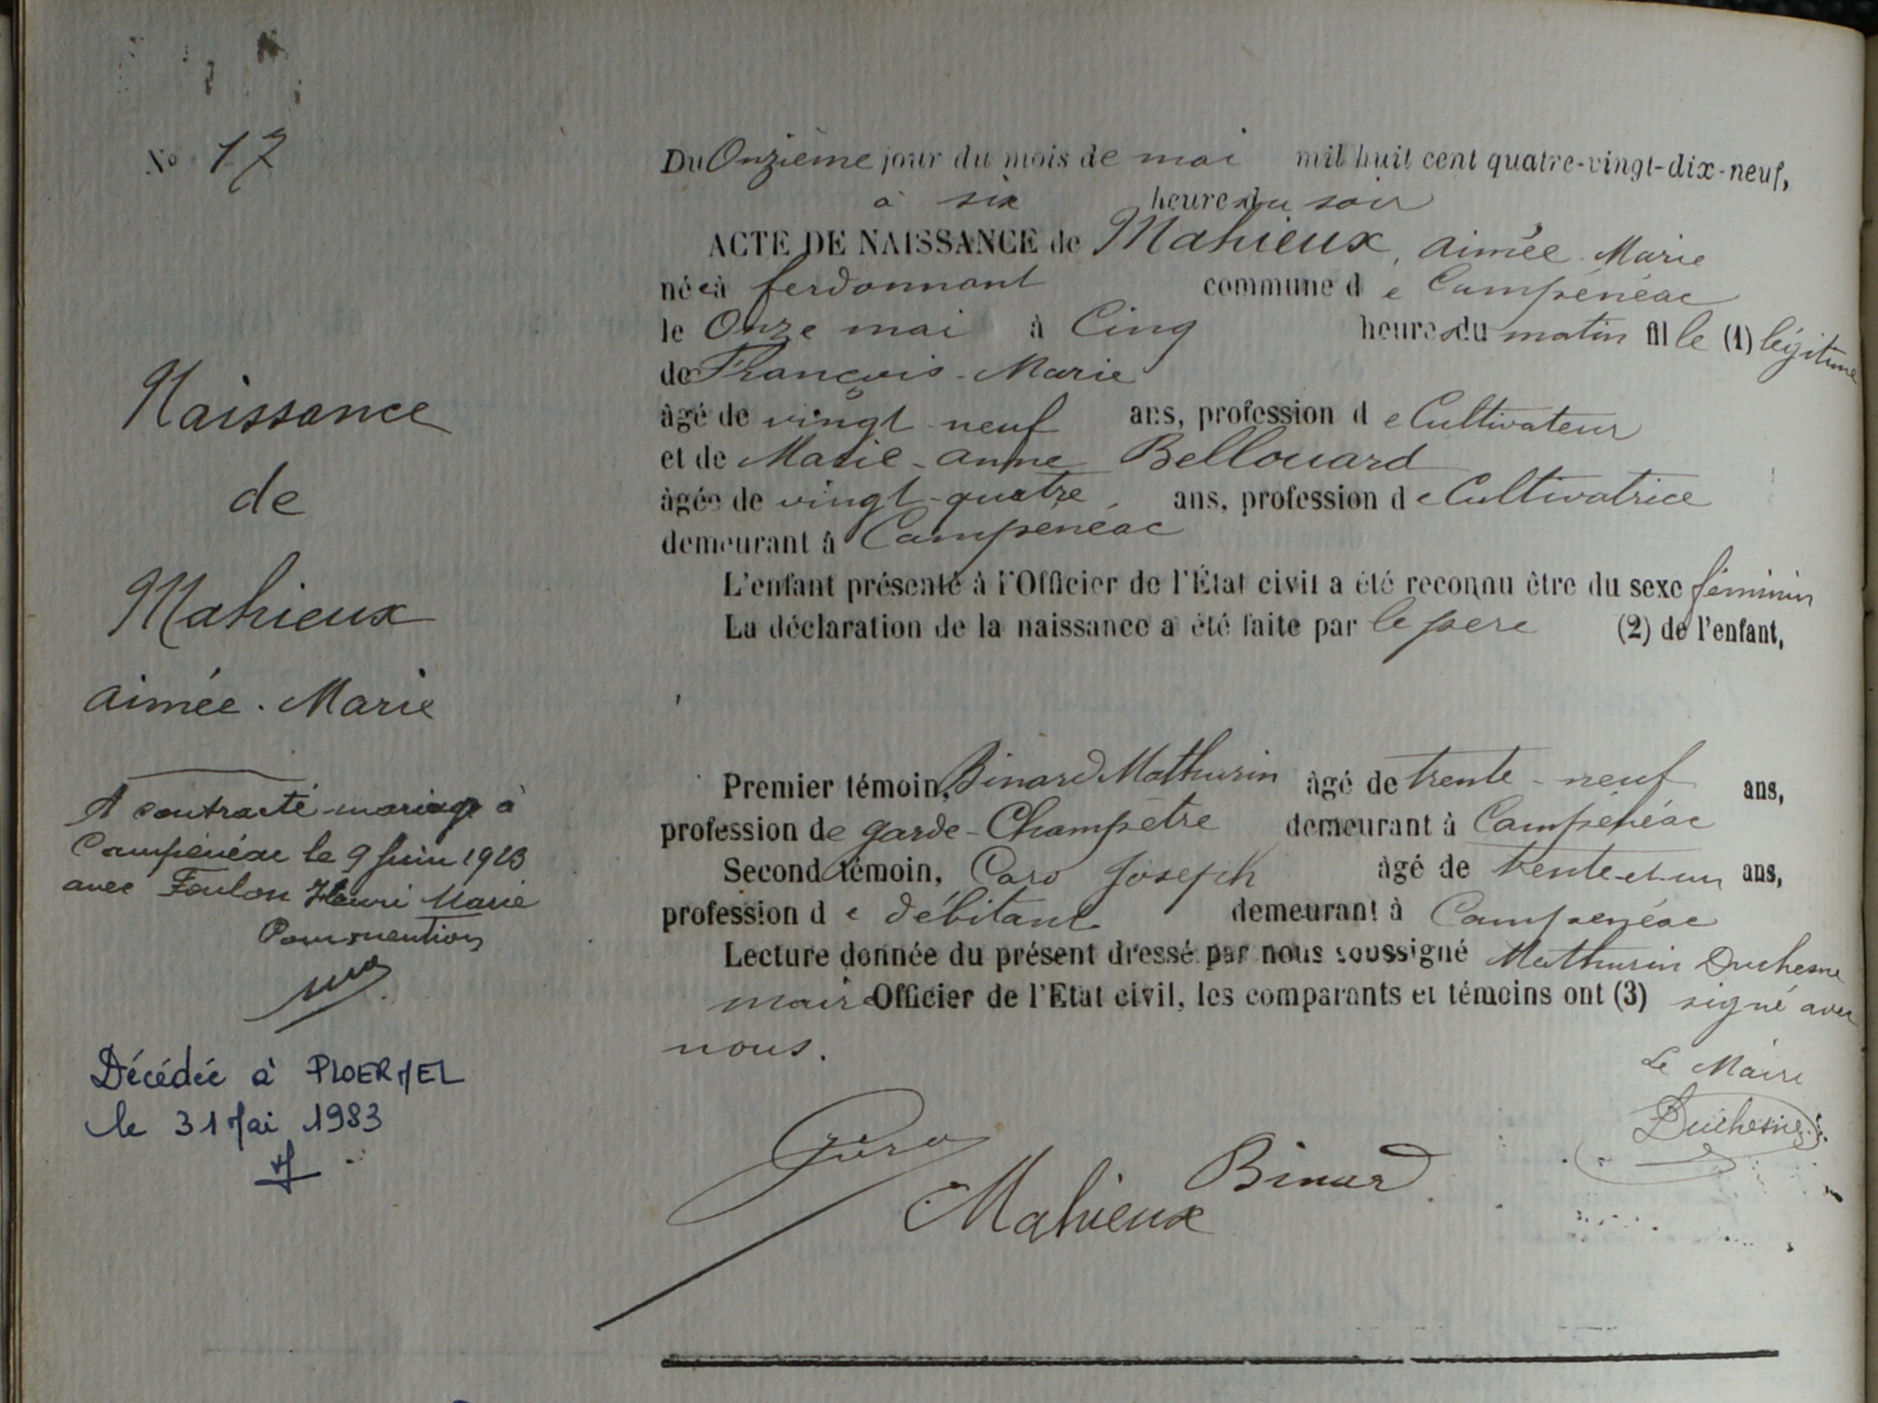 No 17
Naissance
de
Mahieux
aimée. Marie
A contracté mariage à
Campénéac le 9 Juin 1923
avec Foulon Henri Marie
Pour mention
Décédée à PLOERMEL
le 31 Mai 1983
Du Onzième jour du mois de mai mil huit cent quatre-vingt-dix-neuf,
à six heures du soir
ACTE DE NAISSANCE de Mahieux, aimée Marie
née à ferdonnant commune de Campénéac
le Onze mai à Cinq heures du matin fille (1) légitime
de François-Marie
âgé de vingt-neuf ans, profession de Cultivateur
et de Marie-anne Bellouard
âgée de vingt-quatre ans, profession de Cultivatrice
demeurant à Campénéac
L'enfant présenté à l'Officier de l'État civil a été reconnu être du sexe féminin
La déclaration de la naissance a été faite par le père (2) de l'enfant,
Premier témoin, Binard Mathurin âgé de trente-neuf ans,
profession de garde-Champêtre demeurant à Campénéac
Second témoin, Caro Joseph âgé de trente-et-un ans,
profession de débitant demeurant à Campénéac
Lecture donnée du présent dressé par nous soussigné Mathurin Duchesne
maire Officier de l'Etat civil, les comparants et témoins ont (3) signé avec
nous.
Le Maire
Duchesne
Binard
Mahieux